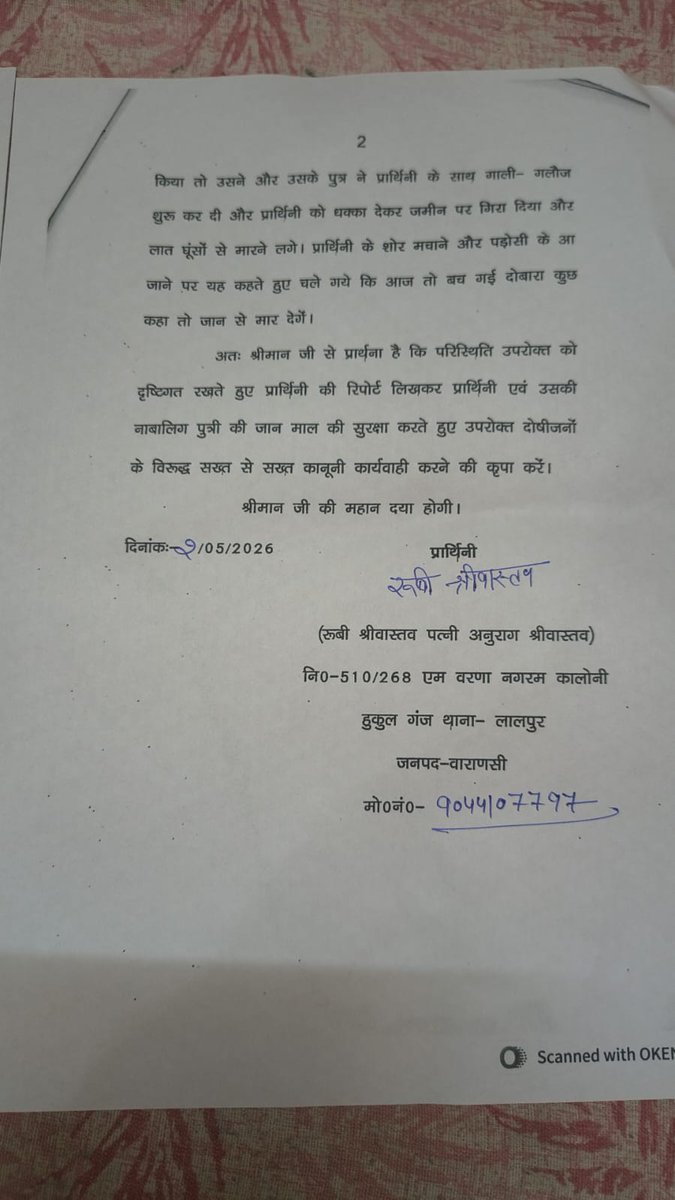 2
किया तो उसने और उसके पुत्र ने प्रार्थिनी के साथ गाली- गलौज
शुरू कर दी और प्रार्थिनी को धक्का देकर जमीन पर गिरा दिया और
लात घूंसों से मारने लगे। प्रार्थिनी के शोर मचाने और पड़ोसी के आ
जाने पर यह कहते हुए चले गये कि आज तो बच गई दोबारा कुछ
कहा तो जान से मार देगें।
अतः श्रीमान जी से प्रार्थना है कि परिस्थिति उपरोक्त को
दृष्टिगत रखते हुए प्रार्थिनी की रिपोर्ट लिखकर प्रार्थिनी एवं उसकी
नाबालिग पुत्री की जान माल की सुरक्षा करते हुए उपरोक्त दोषीजनों
के विरूद्ध सख्त से सख्त कानूनी कार्यवाही करने की कृपा करें।
श्रीमान जी की महान दया होगी।
दिनांकः- /05/2026
प्रार्थिनी
रूबी श्रीवास्तव
(रूबी श्रीवास्तव पत्नी अनुराग श्रीवास्तव)
नि0-510/268 एम वरणा नगरम कालोनी
हुकुल गंज थाना- लालपुर
जनपद-वाराणसी
मो0नं0- 9044107797
Scanned with OKEN